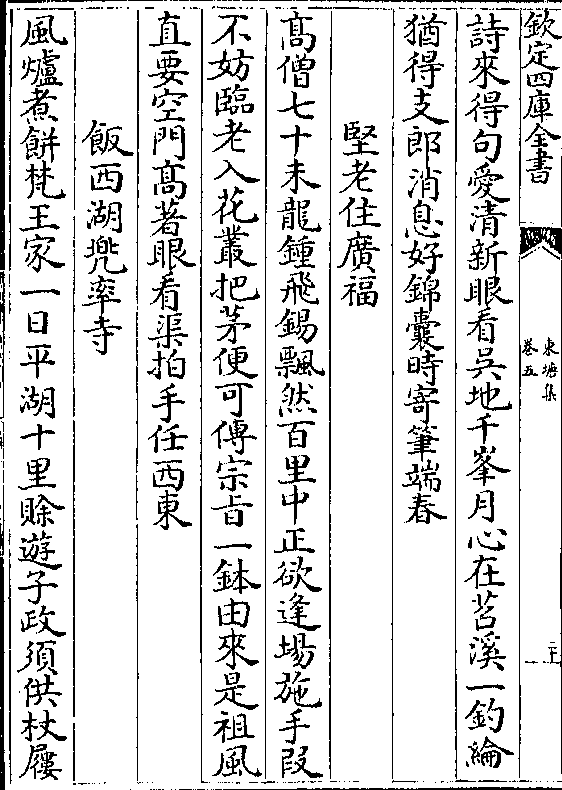 欽定四庫全書
東塘集
卷五
二十一
詩來得句愛清新眼看吳地千峯月心在苕溪一釣綸
猶得支郎消息好錦囊時寄筆端春
堅老住廣福
髙僧七十未龍鍾飛錫飄然百里中正欲逢場施手叚
不妨臨老入花叢把茅便可傳宗旨一鉢由來是祖風
直要空門髙著眼看渠拍手任西東
飯西湖兠率寺
風爐煮餅梵王家一日平湖十里賖遊子政須供杖屨